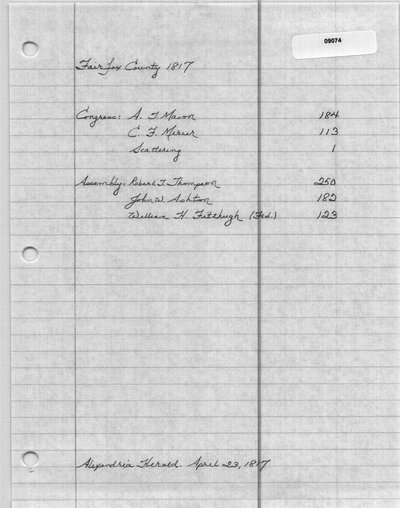 09074
Fairfax County 1817
Congress: A. T. Mason 184
C. F. Mercer 113
Scattering 1
Assembly: Robert T. Thompson 250
John W. Ashton 182
William H. Fitzhugh (Fed.) 123
Alexandria Herald. April 23, 1817